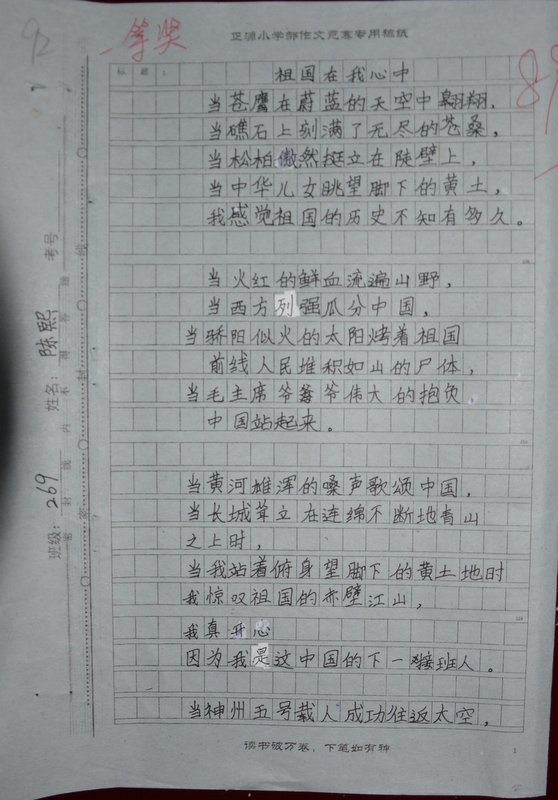 92
一等奖
正源小学部作文竞赛专用稿纸
标题:
祖国在我心中
当苍鹰在蔚蓝的天空中翱翔，
当礁石上刻满了无尽的苍桑，
当松柏傲然挺立在陡壁上，
当中华儿女眺望脚下的黄土，
我感觉祖国的历史不知有多久。
当火红的鲜血流遍山野，
当西方列强瓜分中国，
当骄阳似火的太阳烤着祖国
前线人民堆积如山的尸体，
当毛主席爷爷爷伟大的抱负
中国站起来。
当黄河雄浑的嗓声歌颂中国，
当长城耸立在连绵不断地青山
之上时，
当我站着俯身望脚下的黄土地时
我惊叹祖国的赤壁江山，
我真开心
因为我是这中国的下一接班人。
当神州五号载人成功往返太空，
读书破万卷，下笔如有神
1
班级: 269 姓名: 陈熙 考号
密封线内不